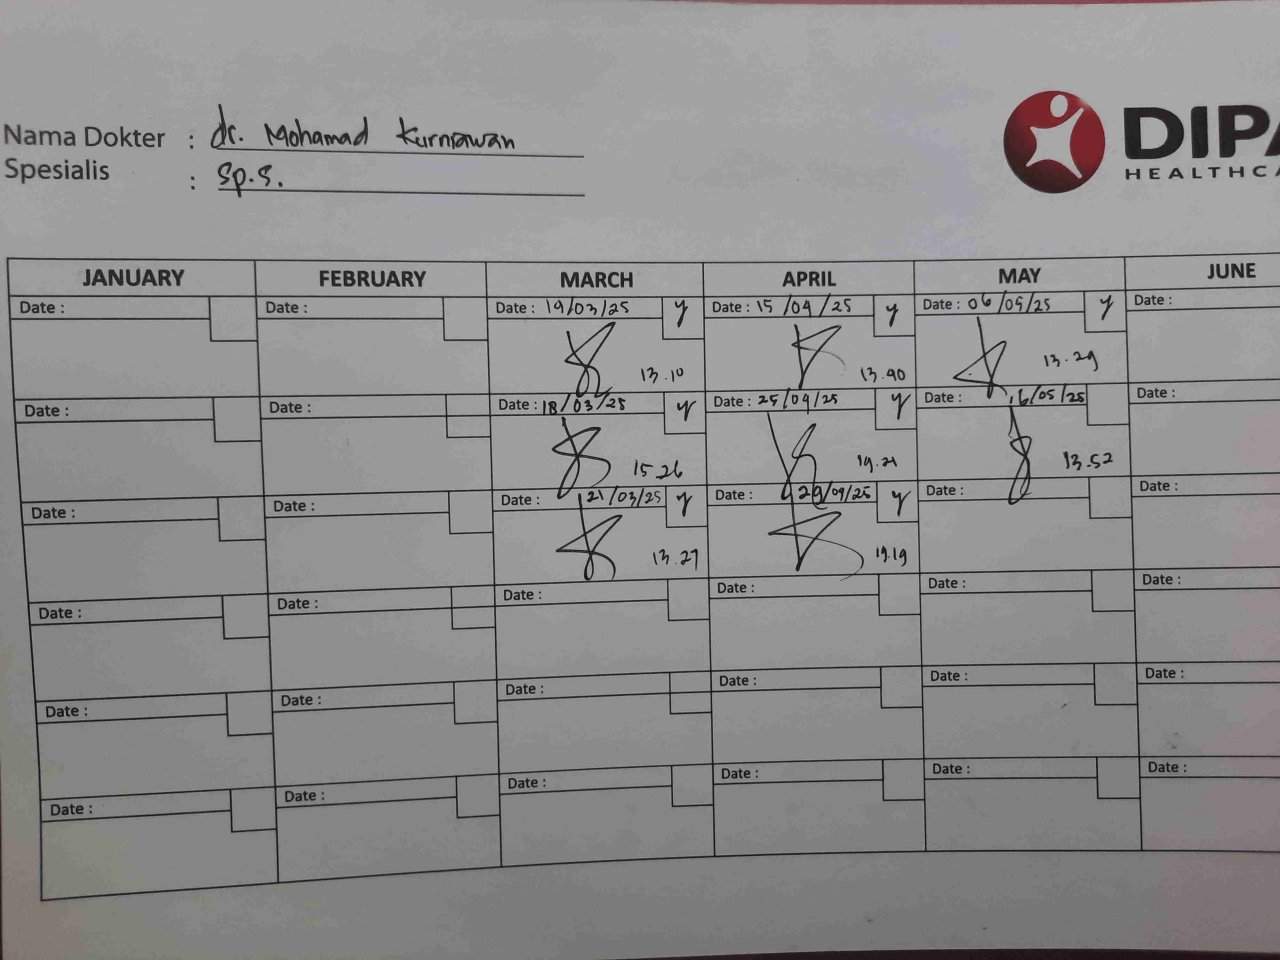 Nama Dokter : dr. Mohamad Kurniawan
Spesialis : Sp.S.
DIPA
HEALTHCA
JANUARY FEBRUARY MARCH APRIL MAY JUNE
Date : Date : Date : 14/03/25 y Date : 15/04/25 y Date : 06/05/25 y Date :
13.10 13.40 13.29
Date : Date : Date : 18/03/25 y Date : 25/04/25 y Date : 16/05/25 Date :
15.26 14.21 13.52
Date : Date : Date : 21/03/25 y Date : 29/04/25 y Date : Date :
13.27 14.19
Date : Date : Date : Date : Date : Date :
Date : Date : Date : Date : Date : Date :
Date : Date : Date : Date : Date : Date :